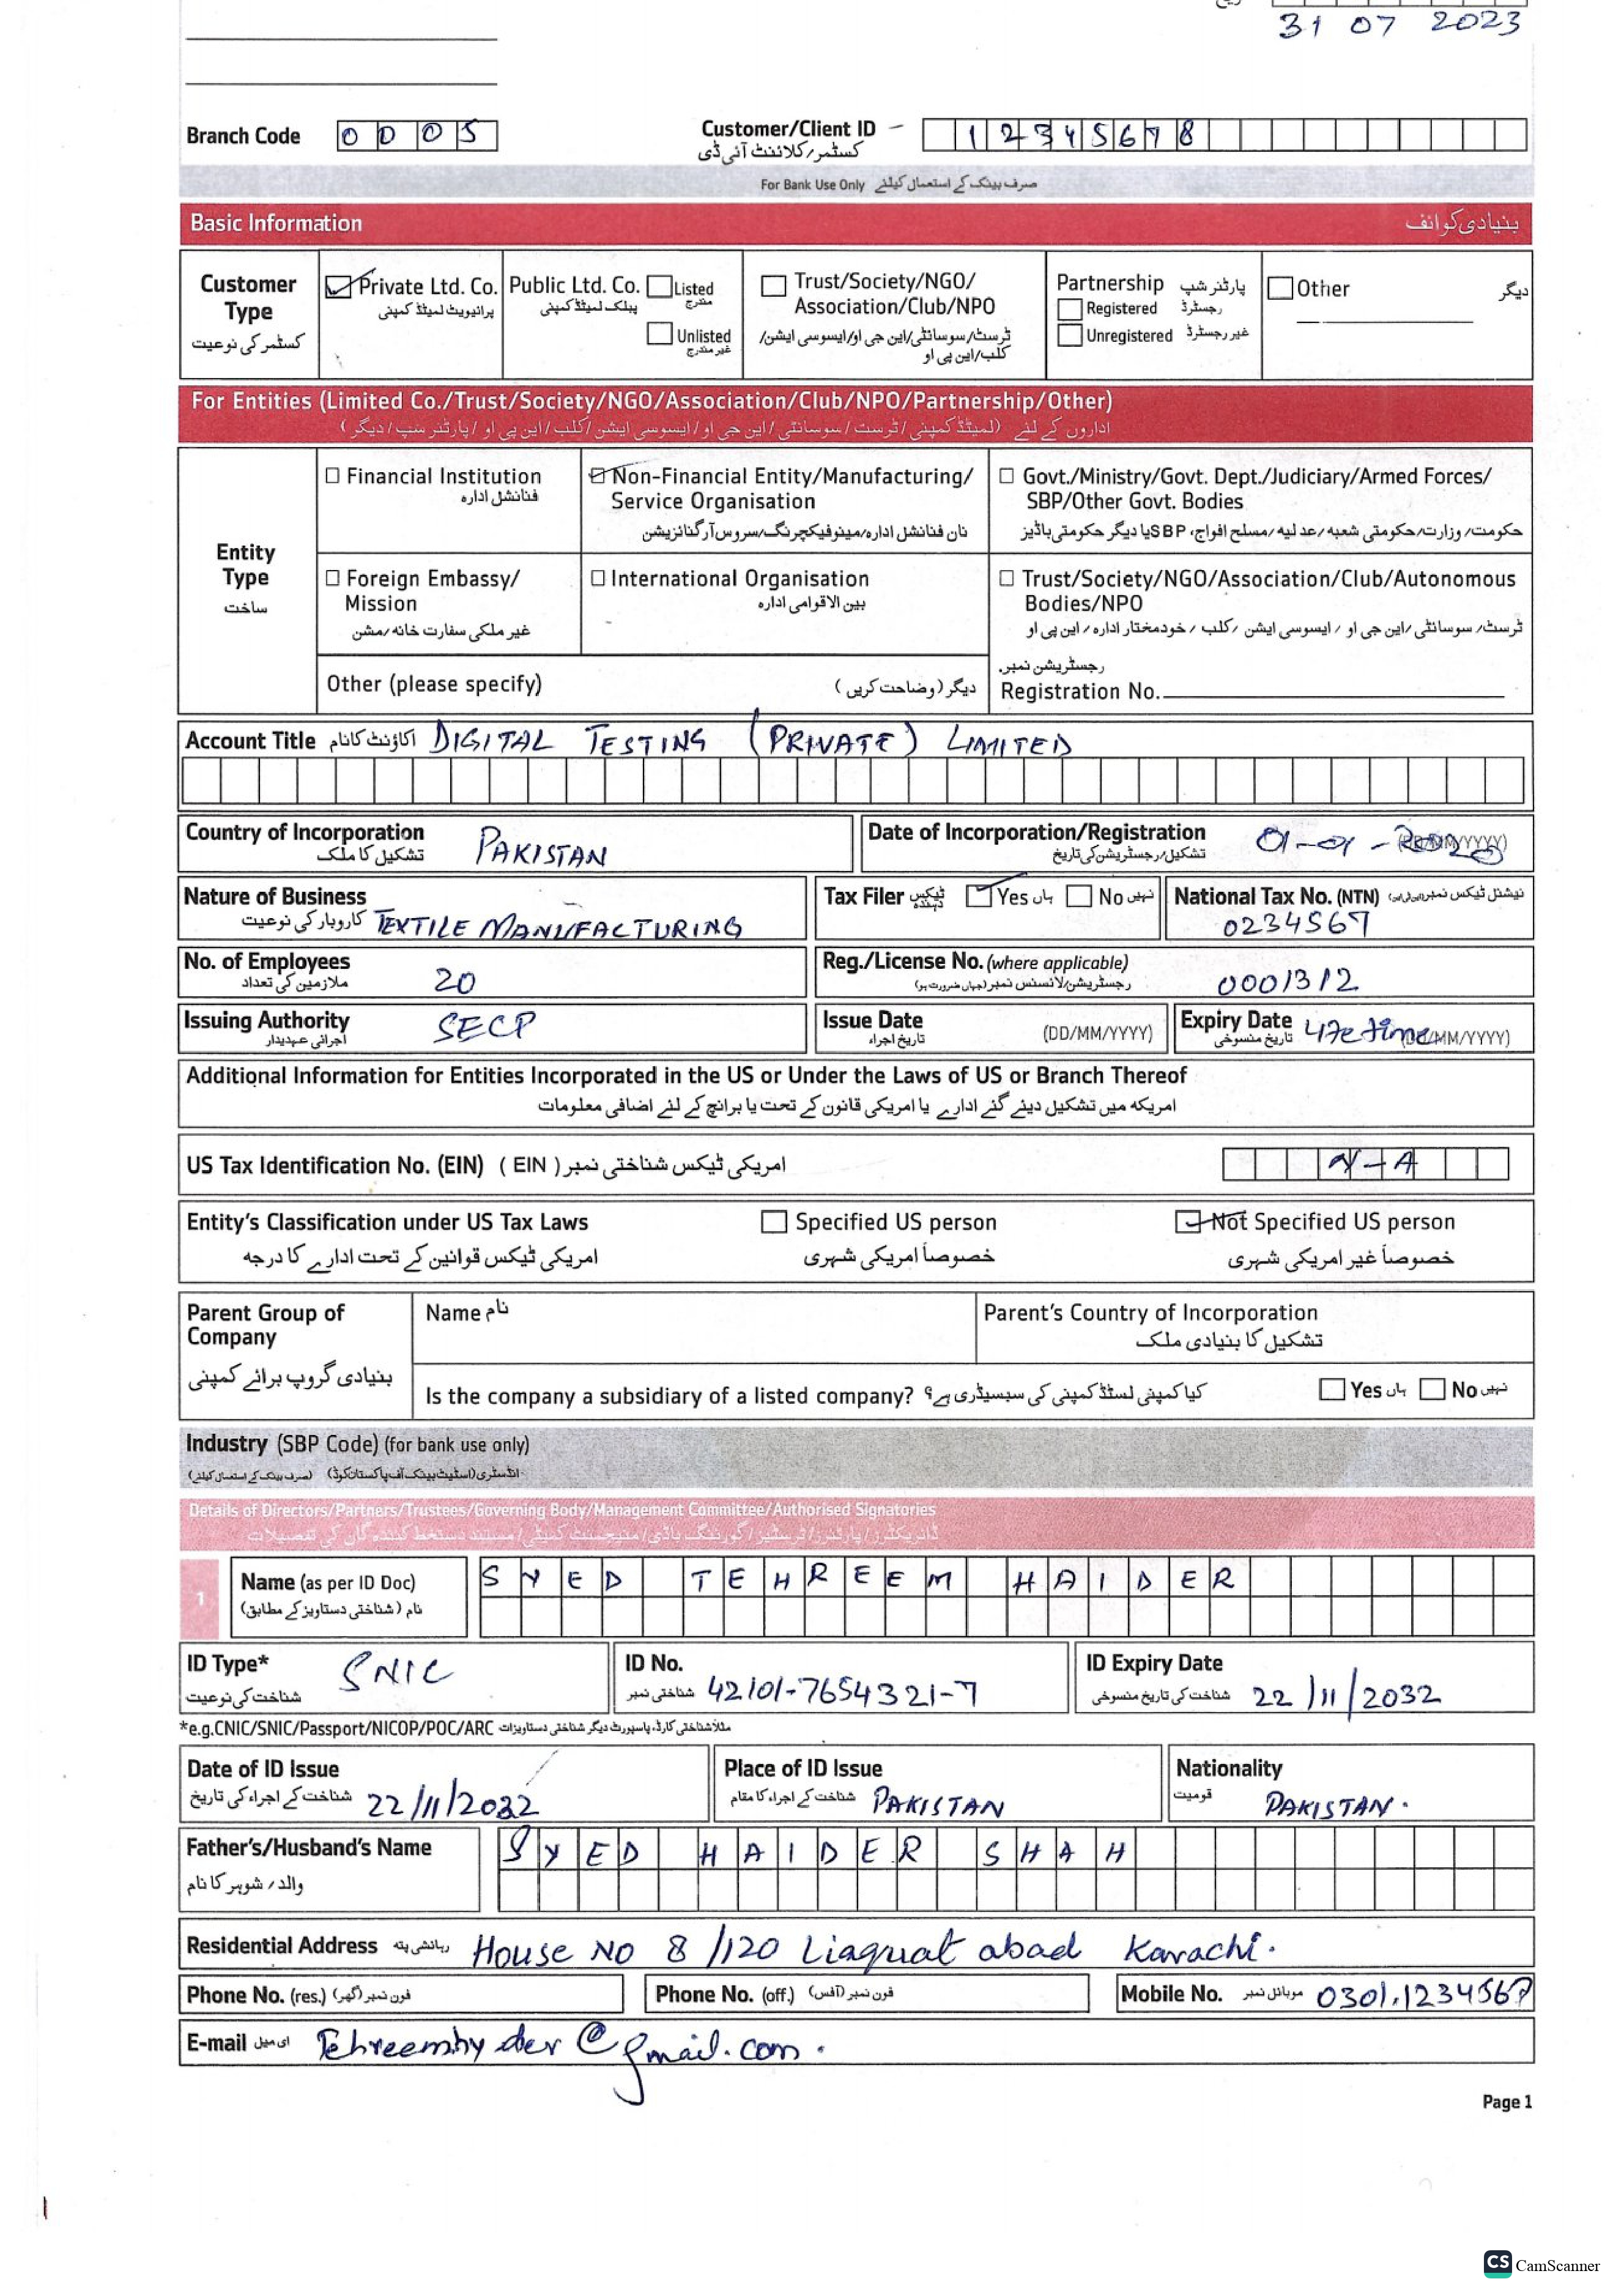 31 07 2023
Branch Code 0005 Customer/Client ID 12345678
کسٹمر/کلائنٹ آئی ڈی
For Bank Use Only صرف بینک کے استعمال کیلئے
Basic Information بنیادی کوائف
Customer Type کسٹمر کی نوعیت
Private Ltd. Co. پرائیویٹ لمیٹڈ کمپنی
Public Ltd. Co. پبلک لمیٹڈ کمپنی
Listed مندرج
Unlisted غیر مندرج
Trust/Society/NGO/
Association/Club/NPO
ٹرسٹ/سوسائٹی/این جی او/ایسوسی ایشن/
کلب/این پی او
Partnership پارٹنر شپ
Registered رجسٹرڈ
Unregistered غیر رجسٹرڈ
Other دیگر
For Entities (Limited Co./Trust/Society/NGO/Association/Club/NPO/Partnership/Other)
اداروں کے لئے (لمیٹڈ کمپنی/ٹرسٹ/سوسائٹی/این جی او/ایسوسی ایشن/کلب/این پی او/پارٹنر سپ/دیگر)
Entity Type ساخت
Financial Institution
فنانشل ادارہ
Non-Financial Entity/Manufacturing/
Service Organisation
نان فنانشل ادارہ/مینوفیکچرنگ/سروس آرگنائزیشن
Govt./Ministry/Govt. Dept./Judiciary/Armed Forces/
SBP/Other Govt. Bodies
حکومت/وزارت/حکومتی شعبہ/عدلیہ/مسلح افواج، SBP یا دیگر حکومتی باڈیز
Foreign Embassy/
Mission
غیر ملکی سفارت خانہ/مشن
International Organisation
بین الاقوامی ادارہ
Trust/Society/NGO/Association/Club/Autonomous
Bodies/NPO
ٹرسٹ/سوسائٹی/این جی او/ایسوسی ایشن/کلب/خودمختار ادارہ/این پی او
Other (please specify) دیگر (وضاحت کریں)
رجسٹریشن نمبر
Registration No.
Account Title اکاؤنٹ کا نام DIGITAL TESTING (PRIVATE) LIMITED
Country of Incorporation تشکیل کا ملک PAKISTAN
Date of Incorporation/Registration تشکیل/رجسٹریشن کی تاریخ 01-01-2020 (DD/MM/YYYY)
Nature of Business کاروبار کی نوعیت TEXTILE MANUFACTURING
Tax Filer ٹیکس دہندہ Yes ہاں No نہیں
National Tax No. (NTN) 0234567
No. of Employees ملازمین کی تعداد 20
Reg./License No. (where applicable) رجسٹریشن/لائسنس نمبر (جہاں ضرورت ہو) 0001312
Issuing Authority اجرائی عہدیدار SECP
Issue Date تاریخ اجراء (DD/MM/YYYY)
Expiry Date تاریخ منسوخی Life time (DD/MM/YYYY)
Additional Information for Entities Incorporated in the US or Under the Laws of US or Branch Thereof
امریکہ میں تشکیل دیئے گئے ادارے یا امریکی قانون کے تحت یا برانچ کے لئے اضافی معلومات
US Tax Identification No. (EIN) امریکی ٹیکس شناختی نمبر ( EIN ) N-A
Entity's Classification under US Tax Laws Specified US person Not Specified US person
امریکی ٹیکس قوانین کے تحت ادارے کا درجہ خصوصاً امریکی شہری خصوصاً غیر امریکی شہری
Parent Group of
Company
بنیادی گروپ برائے کمپنی
Name نام
Parent's Country of Incorporation
تشکیل کا بنیادی ملک
Is the company a subsidiary of a listed company? کیا کمپنی لسٹڈ کمپنی کی سبسیڈری ہے؟ Yes ہاں No نہیں
Industry (SBP Code) (for bank use only)
انڈسٹری (اسٹیٹ بینک آف پاکستان کوڈ) (صرف بینک کے استعمال کیلئے)
Details of Directors/Partners/Trustees/Governing Body/Management Committee/Authorised Signatories
ڈائریکٹرز/پارٹنرز/ٹرسٹیز/گورننگ باڈی/منیجمنٹ کمیٹی/مستند دستخط کنندہ گان کی تفصیلات
1 Name (as per ID Doc) SYED TEHREEM HAIDER
نام (شناختی دستاویز کے مطابق)
ID Type* شناخت کی نوعیت SNIC
ID No. شناختی نمبر 42101-7654321-7
ID Expiry Date شناخت کی تاریخ منسوخی 22/11/2032
*e.g.CNIC/SNIC/Passport/NICOP/POC/ARC مثلاً شناختی کارڈ، پاسپورٹ دیگر شناختی دستاویزات
Date of ID Issue شناخت کے اجراء کی تاریخ 22/11/2022
Place of ID Issue شناخت کے اجراء کا مقام PAKISTAN
Nationality قومیت PAKISTAN.
Father's/Husband's Name SYED HAIDER SHAH
والد/شوہر کا نام
Residential Address رہائشی پتہ House NO 8/120 Liaquat abad Karachi.
Phone No. (res.) فون نمبر (گھر) Phone No. (off.) فون نمبر (آفس) Mobile No. موبائل نمبر 0301.1234567
E-mail ای میل Tehreemhyder@gmail.com.
Page 1
CS CamScanner